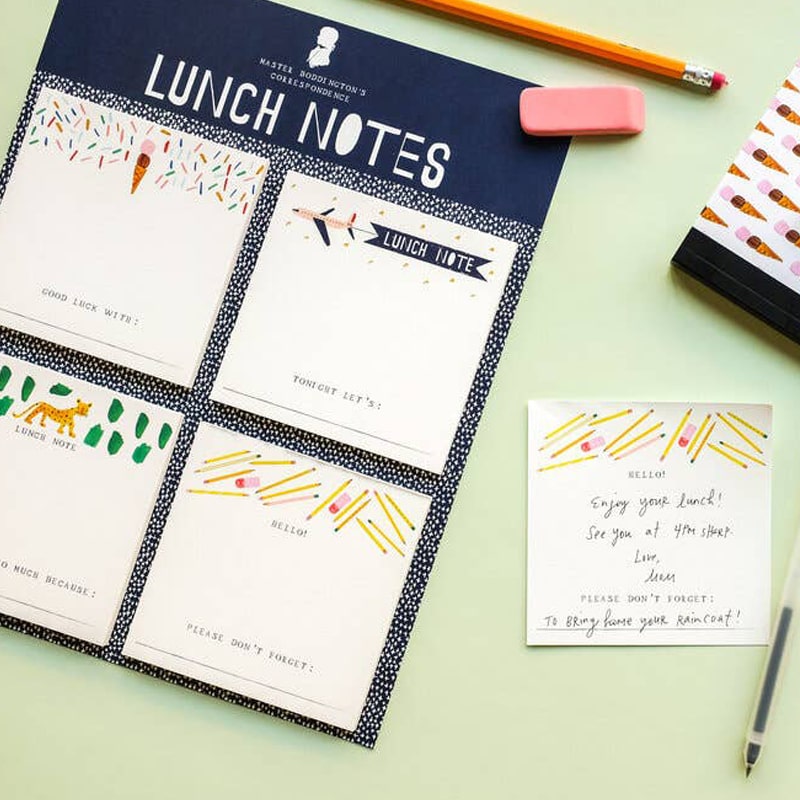 MASTER BODDINGTON'S
CORRESPONDENCE
LUNCH NOTES
GOOD LUCK WITH:
LUNCH NOTE
TONIGHT LET'S:
LUNCH NOTE
O MUCH BECAUSE:
HELLO!
PLEASE DON'T FORGET:
HELLO!
Enjoy your lunch!
See you at 4PM SHARP.
Love,
Mom
PLEASE DON'T FORGET:
To Bring home your Raincoat!